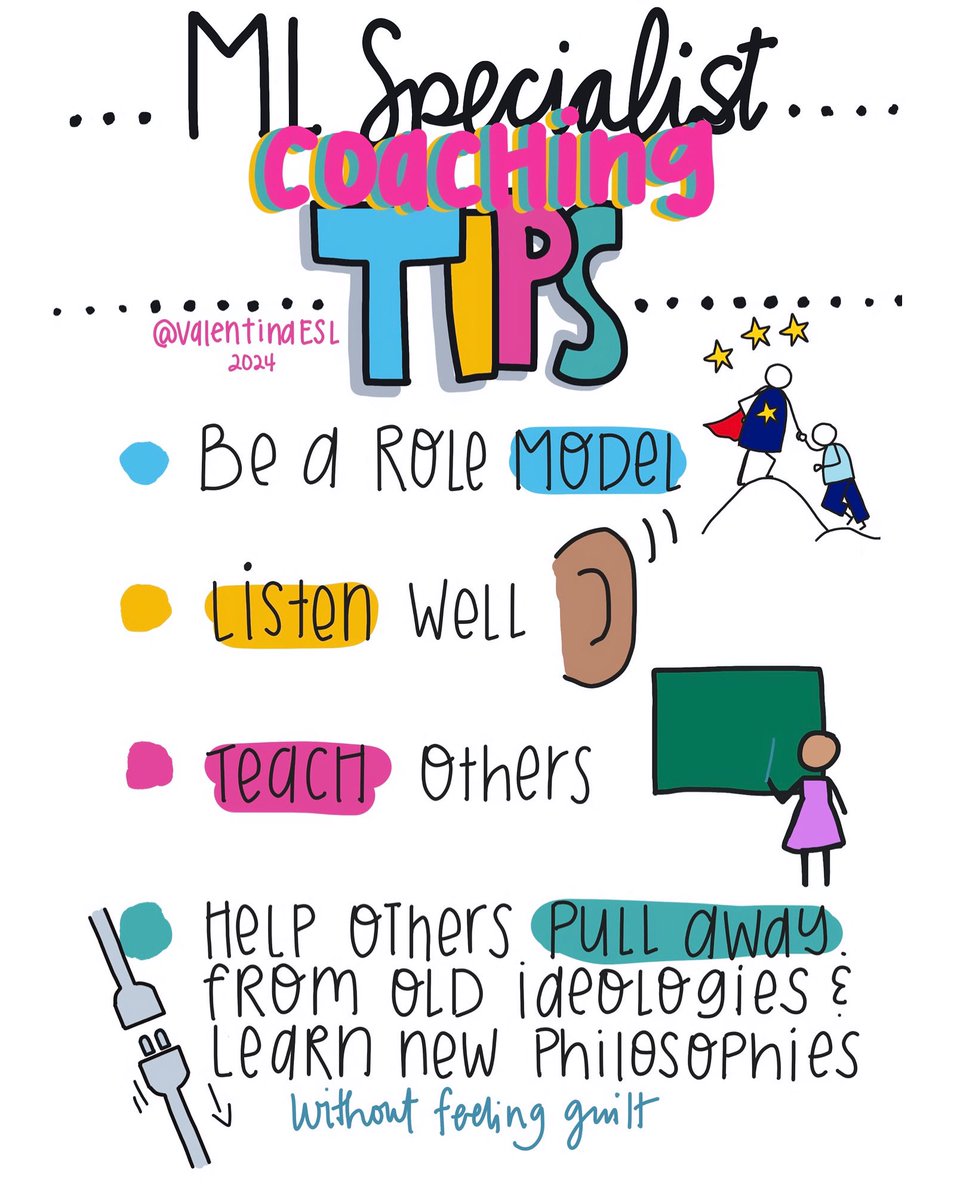 ...ML Specialist....
Coaching
TIPS
@ValentinaESL
2024
Be a Role Model
Listen Well
Teach Others
Help Others Pull away.
from old ideologies &
Learn new Philosophies
without feeling guilt